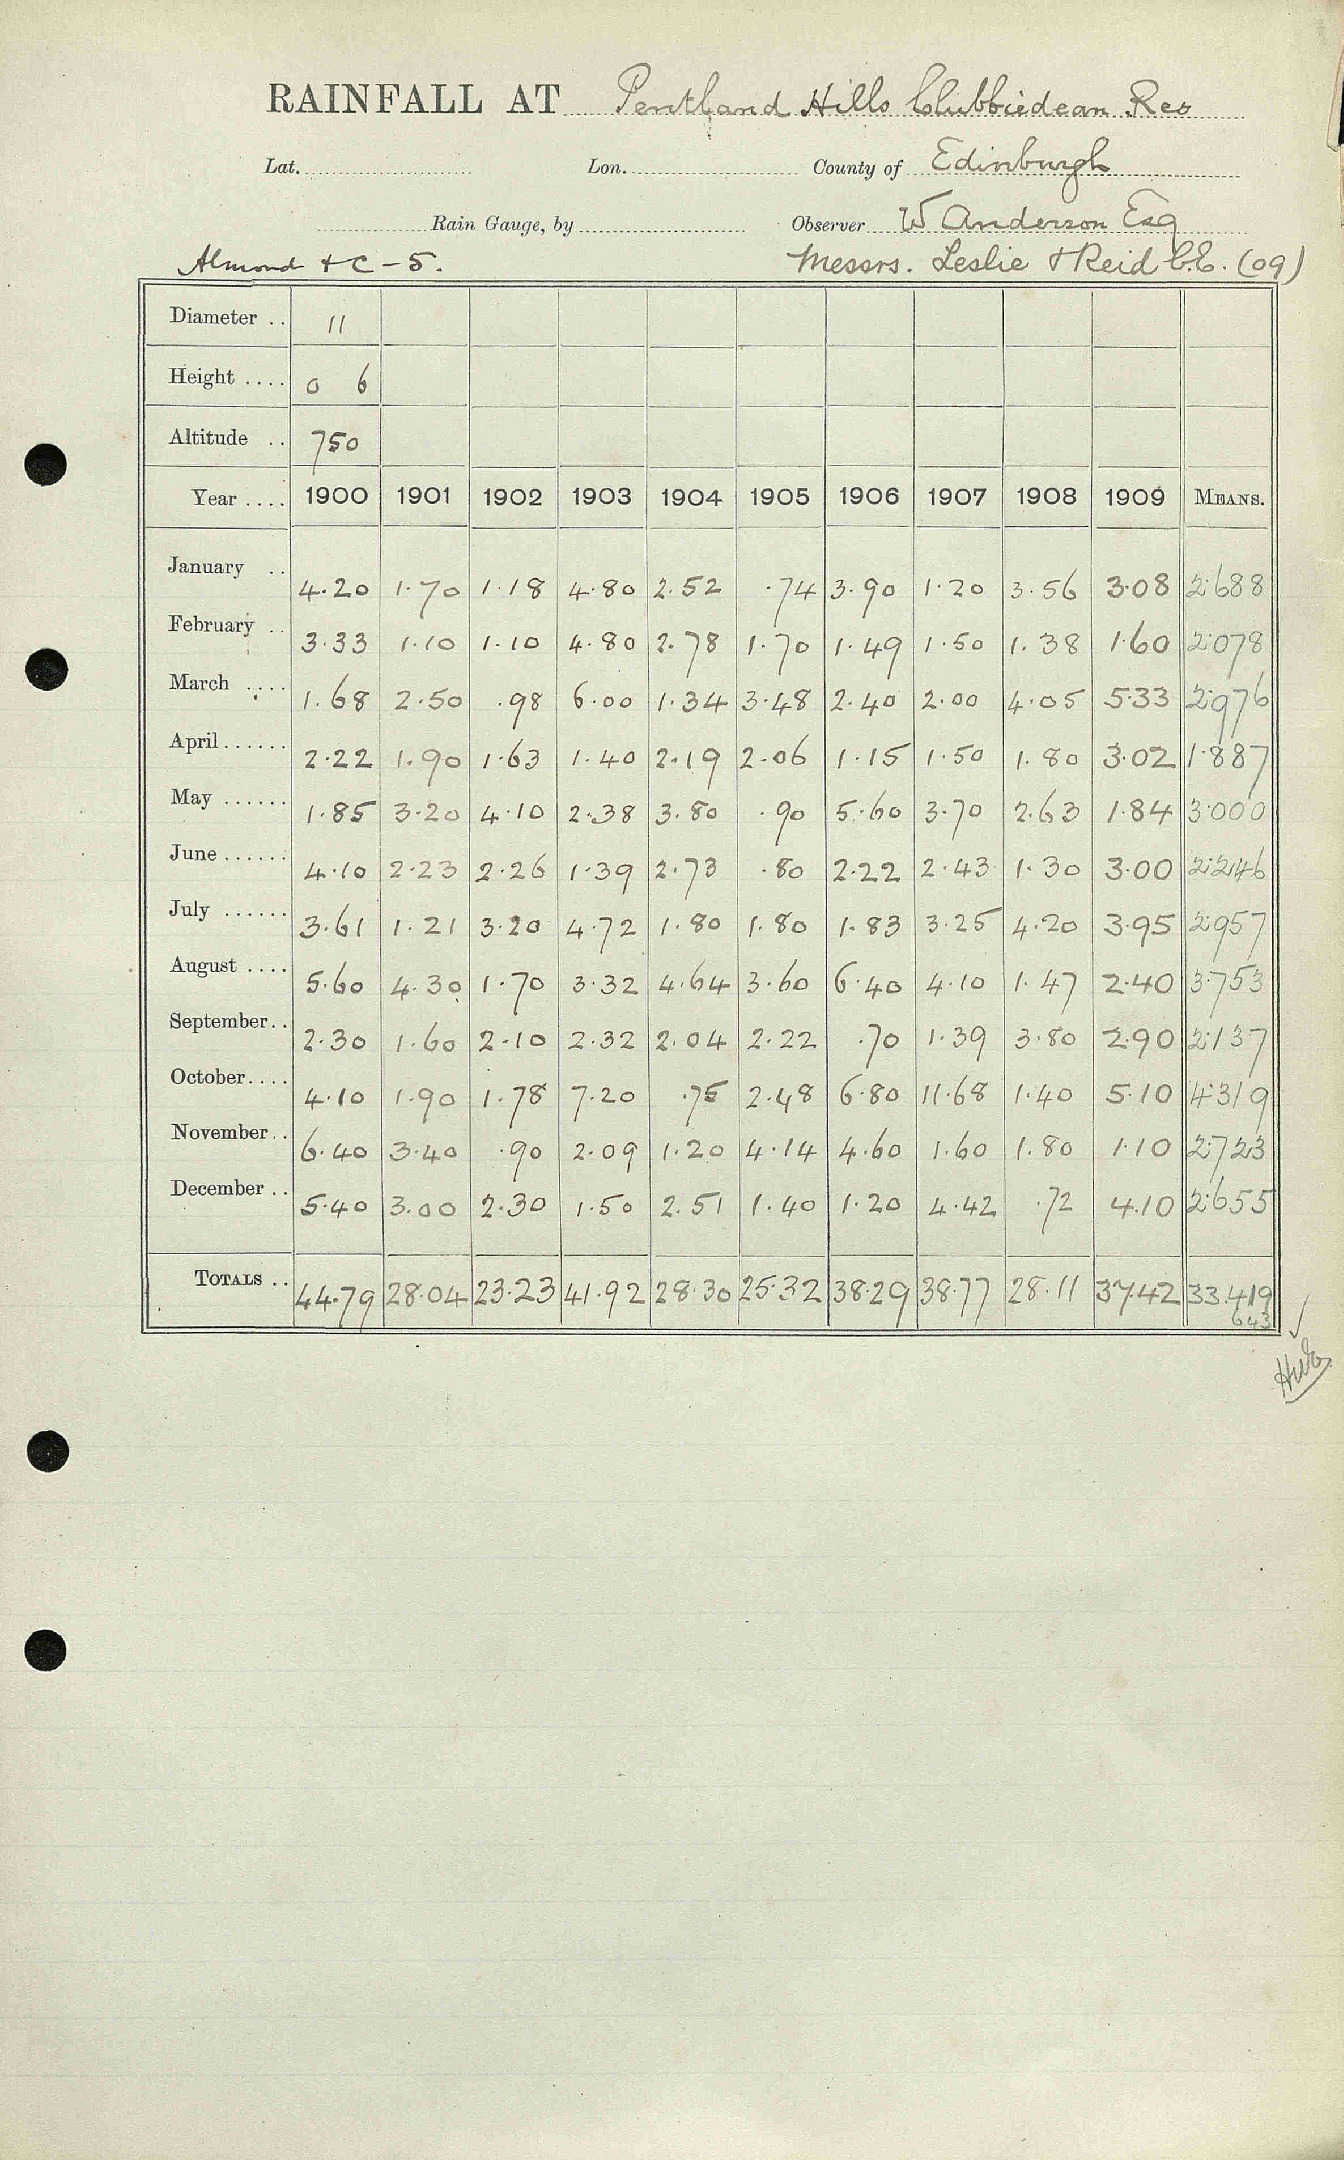 RAINFALL AT Pentland Hills Clubbiedean Res
Lat. Lon. County of Edinburgh
Rain Gauge, by Observer W Anderson Esq
Almond + C - 5. Messrs. Leslie & Reid C.E. (09)
Diameter .. 11
Height .... 0 6
Altitude .. 750
Year .... 1900 1901 1902 1903 1904 1905 1906 1907 1908 1909 MEANS.
January .. 4.20 1.70 1.18 4.80 2.52 .74 3.90 1.20 3.56 3.08 2.688
February .. 3.33 1.10 1.10 4.80 2.78 1.70 1.49 1.50 1.38 1.60 2.078
March .... 1.68 2.50 .98 6.00 1.34 3.48 2.40 2.00 4.05 5.33 2.976
April...... 2.22 1.90 1.63 1.40 2.19 2.06 1.15 1.50 1.80 3.02 1.887
May ...... 1.85 3.20 4.10 2.38 3.80 .90 5.60 3.70 2.63 1.84 3.000
June ...... 4.10 2.23 2.26 1.39 2.73 .80 2.22 2.43 1.30 3.00 2.246
July ...... 3.61 1.21 3.20 4.72 1.80 1.80 1.83 3.25 4.20 3.95 2.957
August .... 5.60 4.30 1.70 3.32 4.64 3.60 6.40 4.10 1.47 2.40 3.753
September.. 2.30 1.60 2.10 2.32 2.04 2.22 .70 1.39 3.80 2.90 2.137
October.... 4.10 1.90 1.78 7.20 .75 2.48 6.80 11.68 1.40 5.10 4.319
November.. 6.40 3.40 .90 2.09 1.20 4.14 4.60 1.60 1.80 1.10 2.723
December .. 5.40 3.00 2.30 1.50 2.51 1.40 1.20 4.42 .72 4.10 2.655
TOTALS .. 44.79 28.04 23.23 41.92 28.30 25.32 38.29 38.77 28.11 37.42 33.419
643